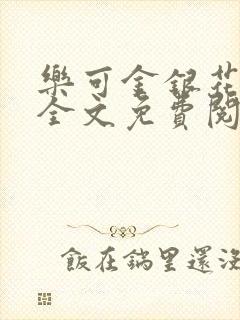 樂可金銀花
全文免費閱
飯在鍋里還沒